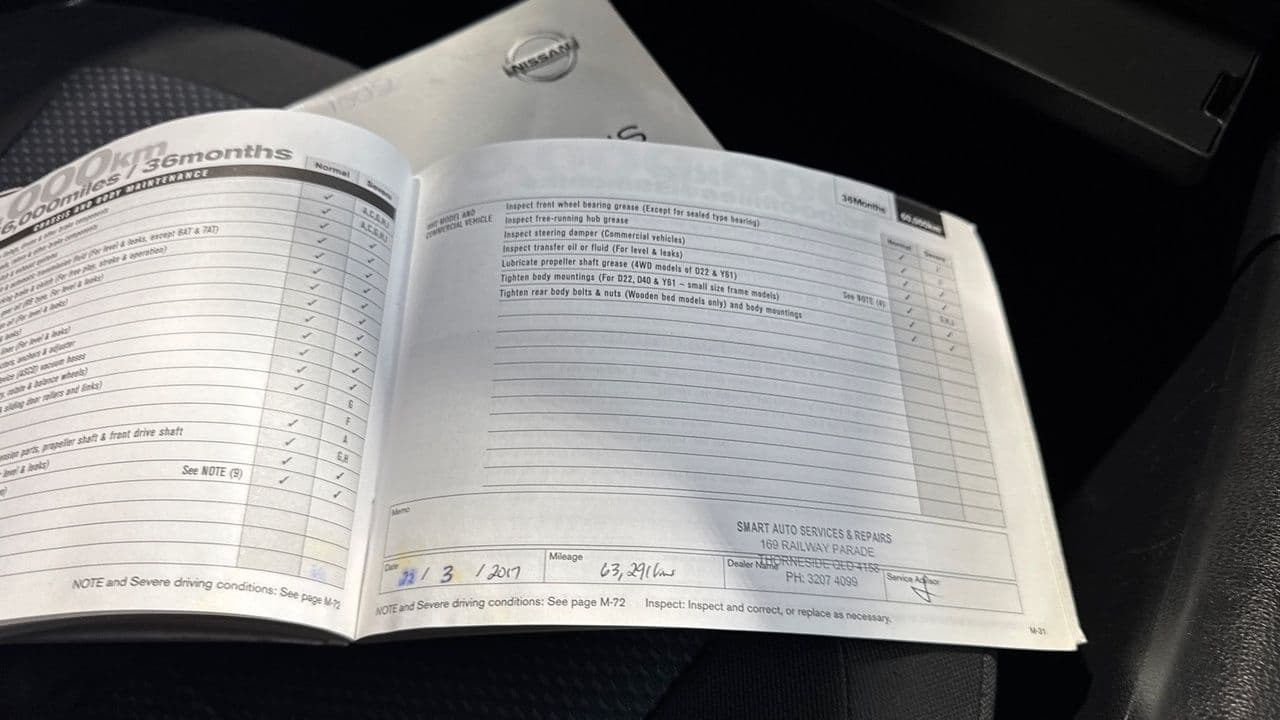 NISSAN
000km
6,000miles / 36months
CHASSIS AND BODY MAINTENANCE
Normal
Severe
A,C,G,H,I
A,C,G,H,I
(For level & leaks, except 6AT & 7AT)
& clutch (For free play, stroke & operation)
(For level & leaks)
(For level & leaks)
leaks)
lines (For level & leaks)
anchors & adjuster
(ASCD) vacuum hoses
rotate & balance wheels)
& sliding door rollers and links)
G
F
parts, propeller shaft & front drive shaft
A
level & leaks)
G,H
See NOTE (9)
NOTE and Severe driving conditions: See page M-72
36Months
60,000km
Normal
Severe
4WD MODEL AND
COMMERCIAL VEHICLE
Inspect front wheel bearing grease (Except for sealed type bearing)
Inspect free-running hub grease
Inspect steering damper (Commercial vehicles)
Inspect transfer oil or fluid (For level & leaks)
Lubricate propeller shaft grease (4WD models of D22 & Y61)
Tighten body mountings (For D22, D40 & Y61 – small size frame models)
See NOTE (4)
Tighten rear body bolts & nuts (Wooden bed models only) and body mountings
Memo
SMART AUTO SERVICES & REPAIRS
169 RAILWAY PARADE
THORNESIDE QLD 4158
PH: 3207 4099
Date
22 / 3 / 2017
Mileage
63,291kms
Dealer Name
Service Advisor
NOTE and Severe driving conditions: See page M-72 Inspect: Inspect and correct, or replace as necessary.
M-31